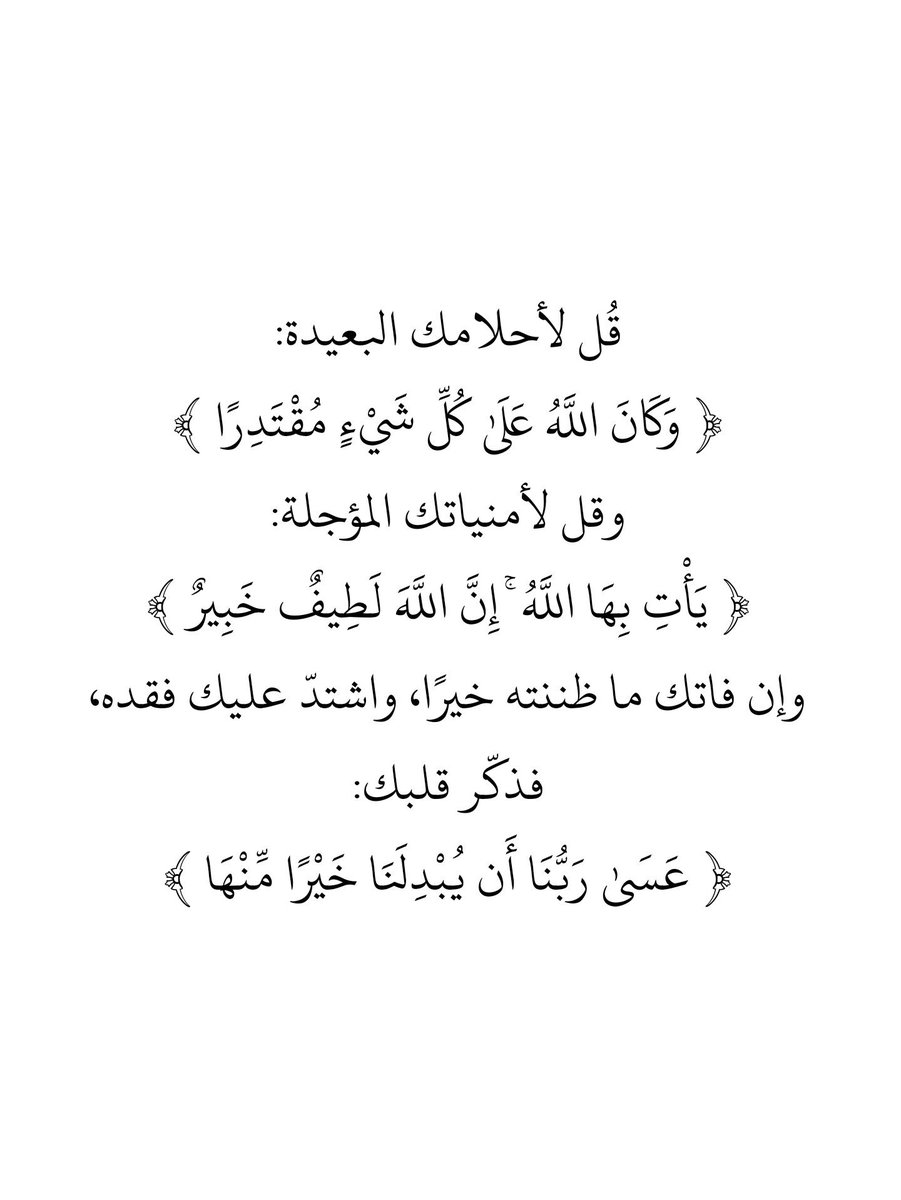 قُل لأحلامك البعيدة:
﴿ وَكَانَ اللَّهُ عَلَىٰ كُلِّ شَيْءٍ مُقْتَدِرًا ﴾
وقل لأمنياتك المؤجلة:
﴿ يَأْتِ بِهَا اللَّهُ ۚ إِنَّ اللَّهَ لَطِيفٌ خَبِيرٌ ﴾
وإن فاتك ما ظننته خيرًا، واشتدّ عليك فقده،
فذكّر قلبك:
﴿ عَسَىٰ رَبُّنَا أَن يُبْدِلَنَا خَيْرًا مِّنْهَا ﴾